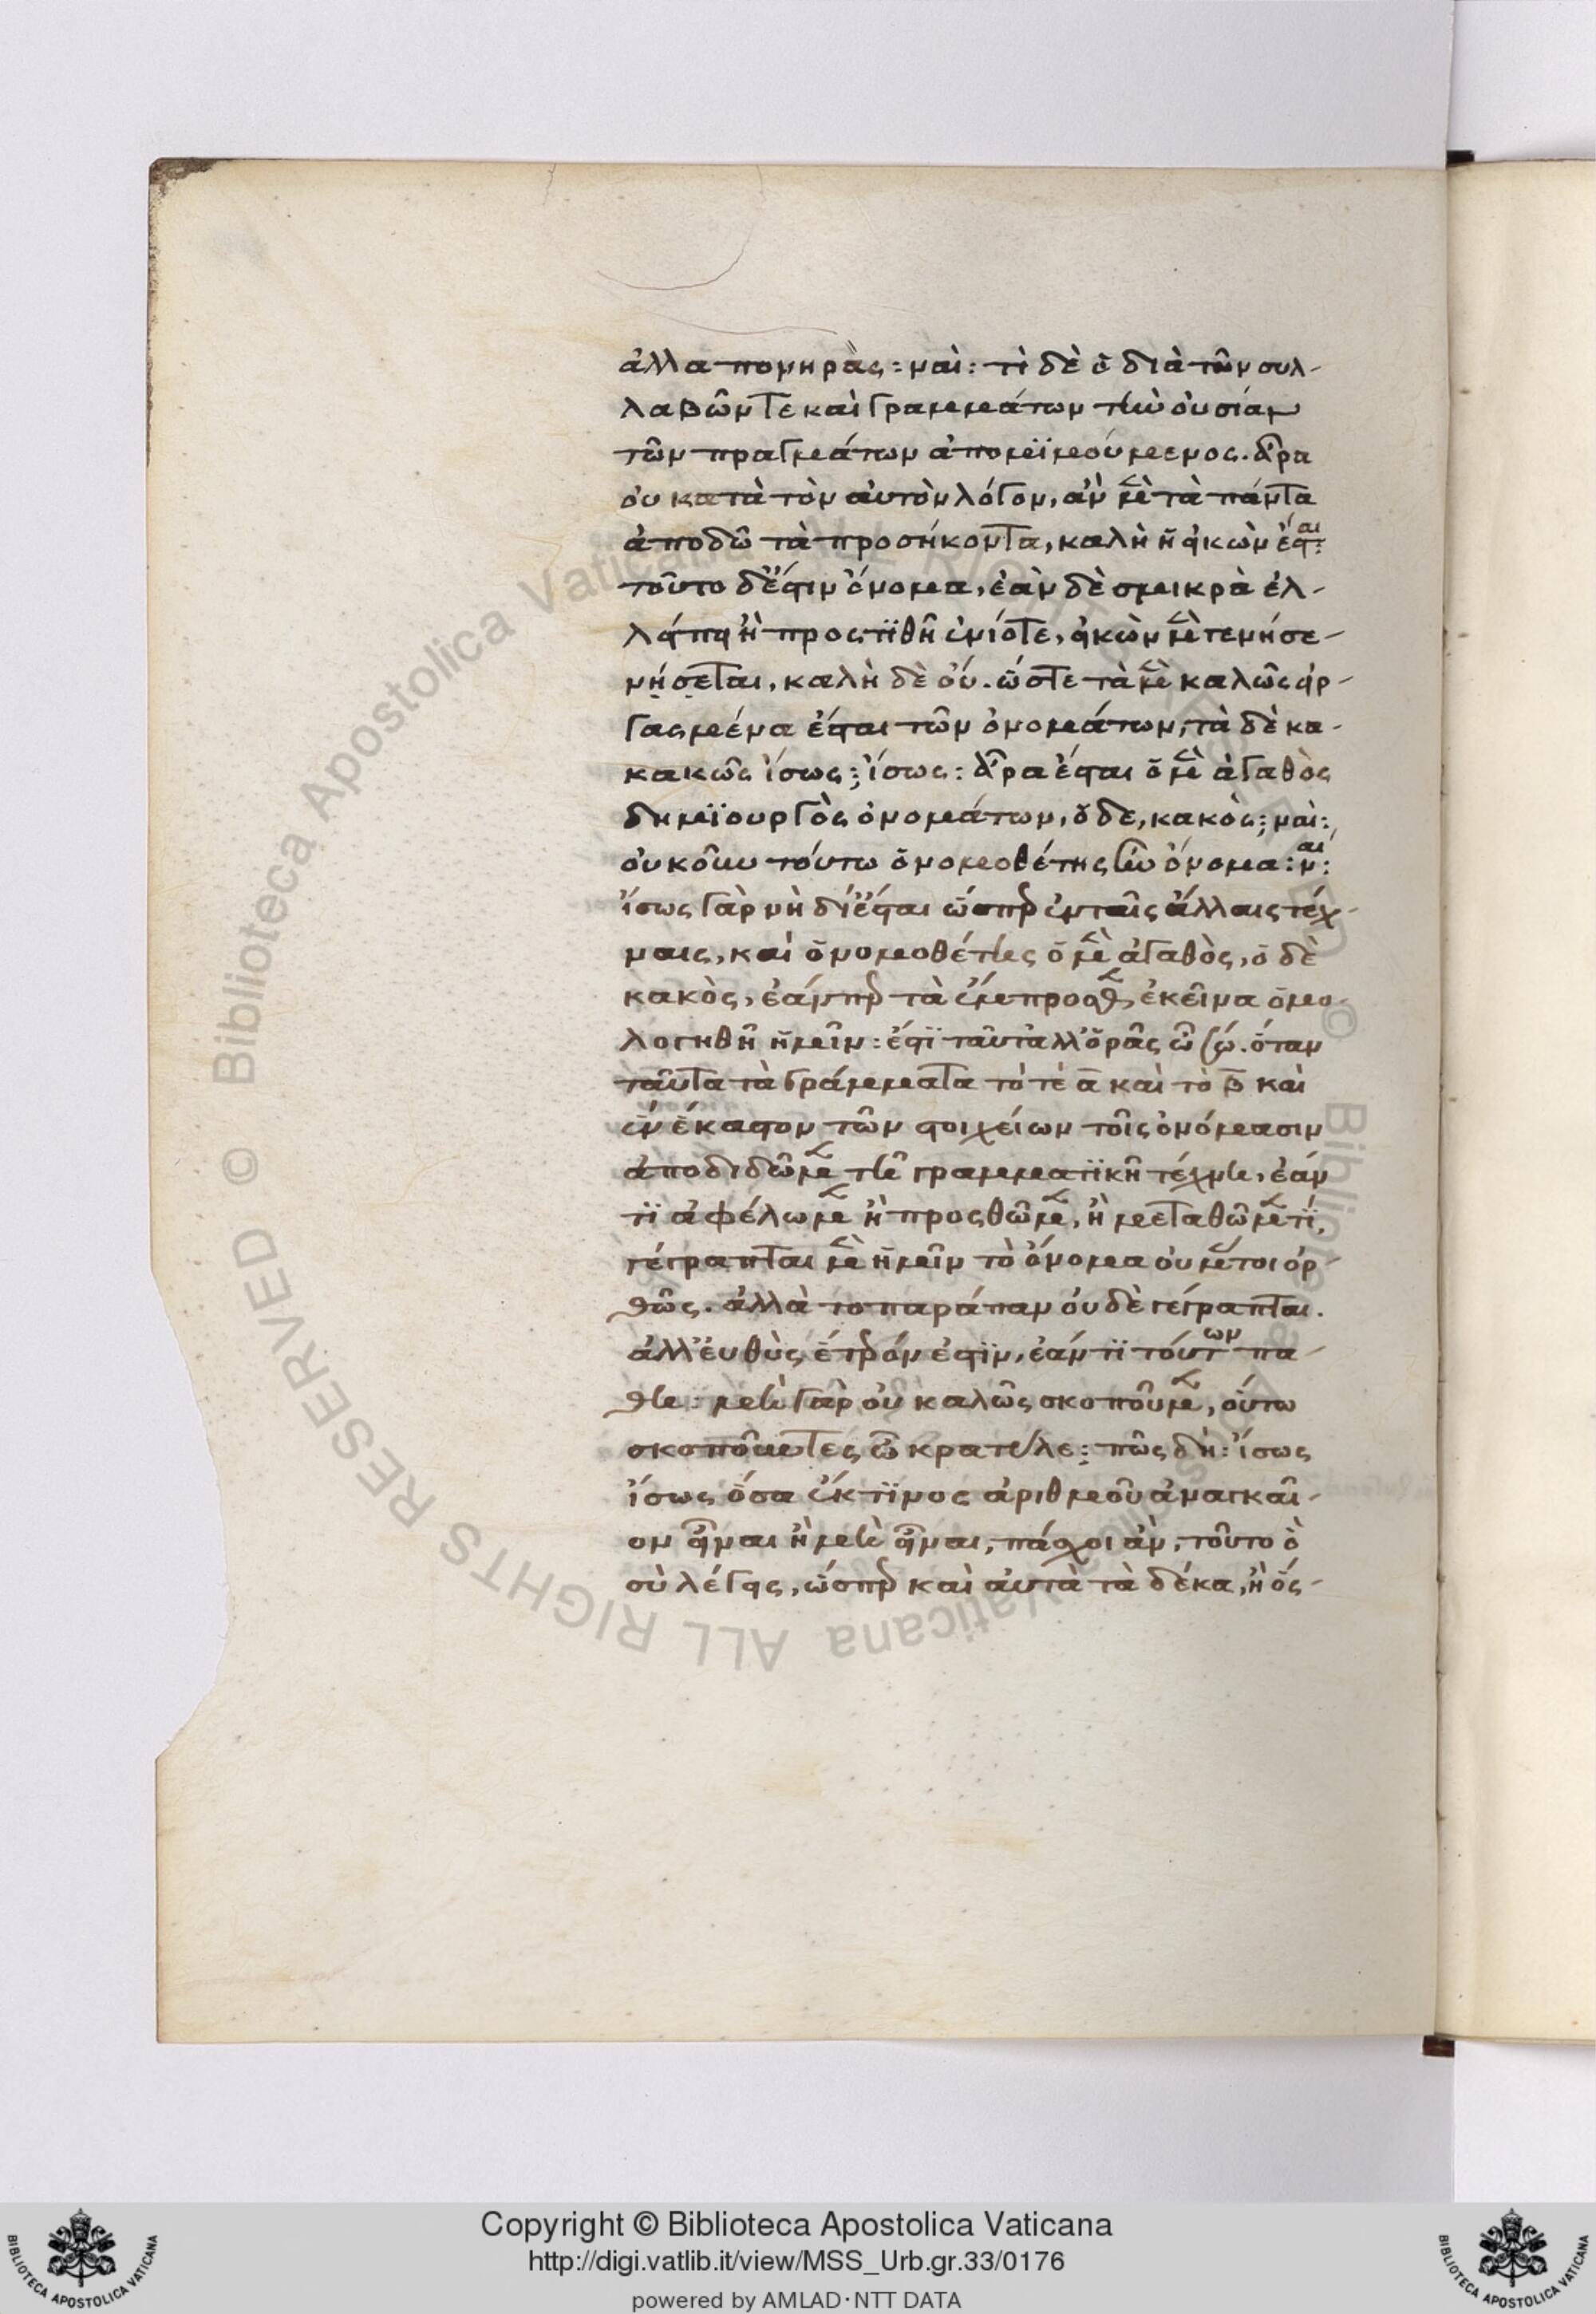 ἀλλα πονηρὰς : ναὶ : τὶ δὲ ὁ διὰ τῶν συλ-
λαβῶν τε καὶ γραμμάτων τὴν οὐσίαν
τῶν πραγμάτων ἀπομϊμούμενος. ἆρα
οὐ κατὰ τὸν αὐτὸν λόγον, ἀν μὲν τὰ πάντα
ἀποδῶ τὰ προσήκοντα, καλὴ ἡ εἰκὼν ἔσται :
τοῦτο δ' ἔστιν ὄνομα, ἐὰν δὲ σμικρὰ ἐλ-
λείπη ἢ προςτϊθῆ ἐνίοτε, εἰκὼν μὲν γενήσε-
νήσεται, καλὴ δὲ οὔ. ὥστε τὰ μὲν καλῶς εἰρ-
γασμένα ἔσται τῶν ὀνομάτων, τὰ δὲ κα-
κακῶς ἴσως ; ἴσως : ἆρα ἔσται ὁ μὲν ἀγαθὸς
δημϊουργὸς ὀνομάτων, ὁ δε, κακὸς ; ναὶ :
οὐκοῦν τούτω ὁ νομοθέτης ἦν ὄνομα : ναί :
ἴσως γὰρ νὴ δί' ἔσται ὥσπερ ἐν ταῖς ἄλλαις τέχ-
ναις, καὶ ὁ νομοθέτης ὁ μὲν ἀγαθὸς, ὁ δὲ
κακὸς, ἐάνπερ τὰ ἔμπροσθεν ἐκεῖνα ὁμο-
λογηθῆ ἡμῖν : ἔστϊ ταῦτ' ἀλλ' ὁρᾶς ὦ σώ. ὅταν
ταῦτα τὰ γράμματα τό τε α καὶ τὸ β καὶ
ἓν ἕκαστον τῶν στοιχείων τοῖς ὀνόμασιν
ἀποδιδῶμεν τῆ γραμματϊκῆ τέχνη, ἐάν
τϊ ἀφέλωμεν ἢ προςθῶμεν, ἢ μεταθῶμέν τϊ,
γέγραπται μὲν ἡμῖν τὸ ὄνομα οὐ μέντοι ὀρ-
θῶς. ἀλλὰ τοπαράπαν οὐδὲ γέγραπται.
ἀλλ' εὐθὺς ἕτερόν ἐστϊν, ἐάν τϊ τούτων πά-
θη : μὴ γὰρ οὐ καλῶς σκοποῦμεν, οὕτω
σκοποῦντες ὦ κρατύλε : πῶς δή : ἴσως
ἴσως ὅσα ἔκ τϊνος ἀριθμοῦ ἀναγκαῖ-
ον εἶναι ἢ μὴ εἶναι, πάσχοι ἀν, τοῦτο ὃ
σὺ λέγεις, ὥσπερ καὶ αὐτὰ τὰ δέκα, ἢ ὅς-
Copyright © Biblioteca Apostolica Vaticana
http://digi.vatlib.it/view/MSS_Urb.gr.33/0176
powered by AMLAD·NTT DATA